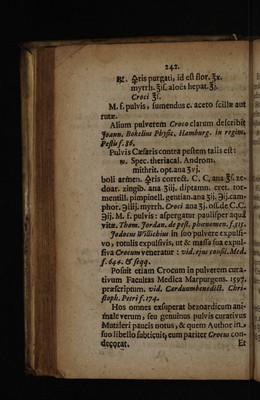 242.
℞. 🜍ris purgati, id est flor. ℥x.
myrrh. ℥iſ. aloës hepat. ℥j.
Croci ℥ſ.
M. f. pulvis, ſumendus c. aceto ſcillæ aut
rutæ.
Alium pulverem Croco clarum deſcribit
Joann. Bokelius Phyſic. Hamburg. in regim.
Peſtis f. 36.
Pulvis Cæſaris contra peſtem talis eſt:
Spec. theriacal. Androm.
mithrit. opt. ana ʒvj.
boli armen. 🜍ris correct. C. C. ana ℥ſ. ze-
doar. zingib. ana ʒiij. diptamn. cret. tor-
mentill. pimpinell. gentian. ana ʒij. ℈ij. cam-
phor. ℈iiij. myrrh. Croci ana ʒj. oſſ. de C. C.
℈ij. M. f. pulvis: aſpergatur pauliſper aquâ
vitæ. Thom. Jordan. de peſt. phœnomen. f. 515.
Jodocus Willichius in ſuo pulvere expulſi-
vo; rotulis expulſivis, ut & maſſa ſua expul-
ſiva Crocum veneratur: vid. ejus conſil. Med.
f. 644. & ſeqq.
Poſuit etiam Crocum in pulverem cura-
tivum Facultas Medica Marpurgens. 1597.
præſcriptum. vid. Carduumbenedict. Chri-
ſtoph. Petri f. 174.
Hos omnes exſuperat bezoardicum ani-
male verum, ſeu genuinus pulvis curativus
Mutzleri paucis notus, & quem Author in
ſuo libello ſubticuit, eum pariter Croco con-
decorat.
Et